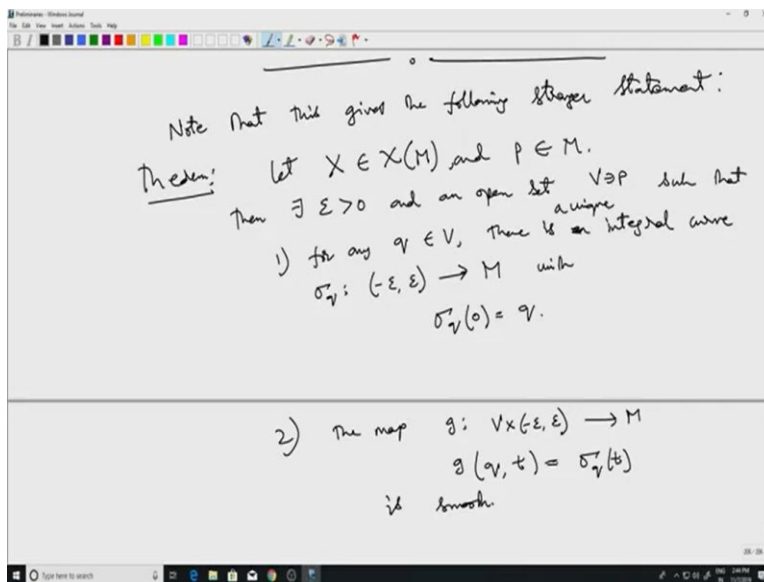 Preliminaries - Windows Journal
File Edit View Insert Actions Tools Help
B I
Note that this gives the following stronger statement:
Theorem: Let X ∈ X(M) and p ∈ M.
Then ∃ ε > 0 and an open set V∋p such that
1) for any q ∈ V, there is a unique integral curve
σ_q : (-ε, ε) → M with
σ_q(0) = q.
2) The map g : V×(-ε, ε) → M
g(q, t) = σ_q(t)
is smooth.
Type here to search
ENG 2:44 PM
IN